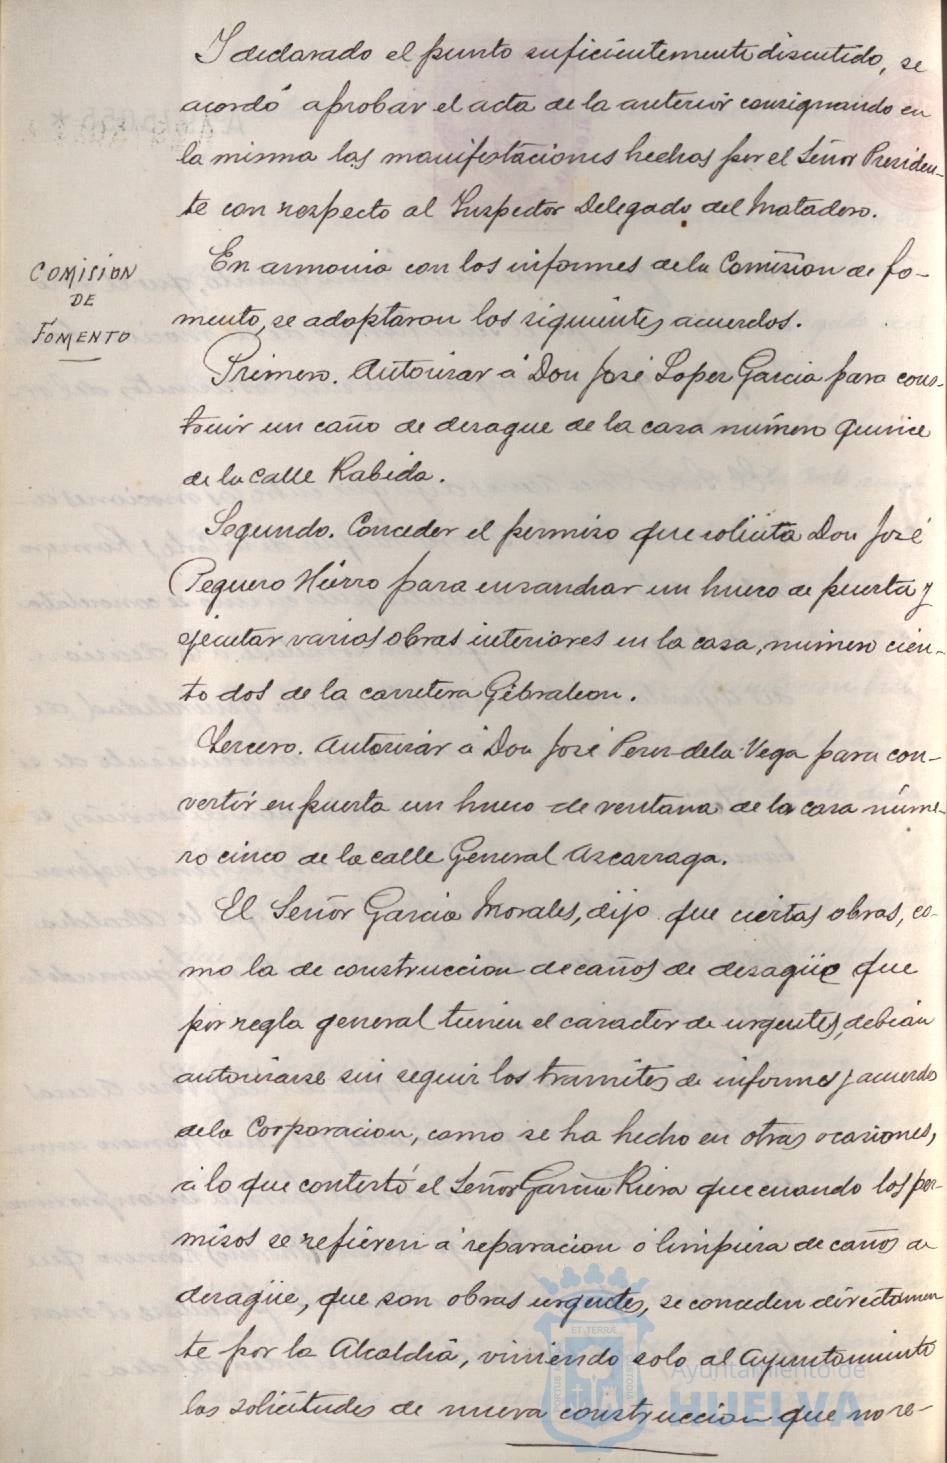 Y declarado el punto suficientemente discutido, se
acordó aprobar el acta de la anterior consignando en
la misma las manifestaciones hechas por el Señor Presiden-
te con respecto al Inspector Delegado del Matadero.
COMISION
DE
FOMENTO
En armonia con los informes de la Comision de fo-
mento, se adoptaron los siguientes acuerdos.
Primero. Autorizar á Don José Lopez Garcia para cons-
truir un caño de desague de la casa número quince
de la calle Rabida.
Segundo. Conceder el permiso que solicita Don José
Peguero Hierro para ensanchar un hueco de puerta y
ejecutar varias obras interiores en la casa, número cien-
to dos de la carretera Gibraleon.
Tercero. Autorizar á Don José Perez de la Vega para con-
vertir en puerta un hueco de ventana de la casa núme-
ro cinco de la calle General Azcarraga.
El Señor Garcia Morales, dijo que ciertas obras, co-
mo la de construccion de caños de desagüe que
por regla general tienen el caracter de urgentes, debian
autorizarse sin seguir los tramites de informes y acuerdo
de la Corporacion, como se ha hecho en otras ocasiones,
á lo que contestó el Señor Garcia Riera que cuando los per-
misos se refieren á reparacion ó limpieza de caños de
desagüe, que son obras urgentes, se conceden directamen
te por la Alcaldia, viniendo solo al Ayuntamiento
las solicitudes de nueva construccion que no re-
ET TERRÆ
PORTUS
CUSTODIA
Ayuntamiento de
HUELVA